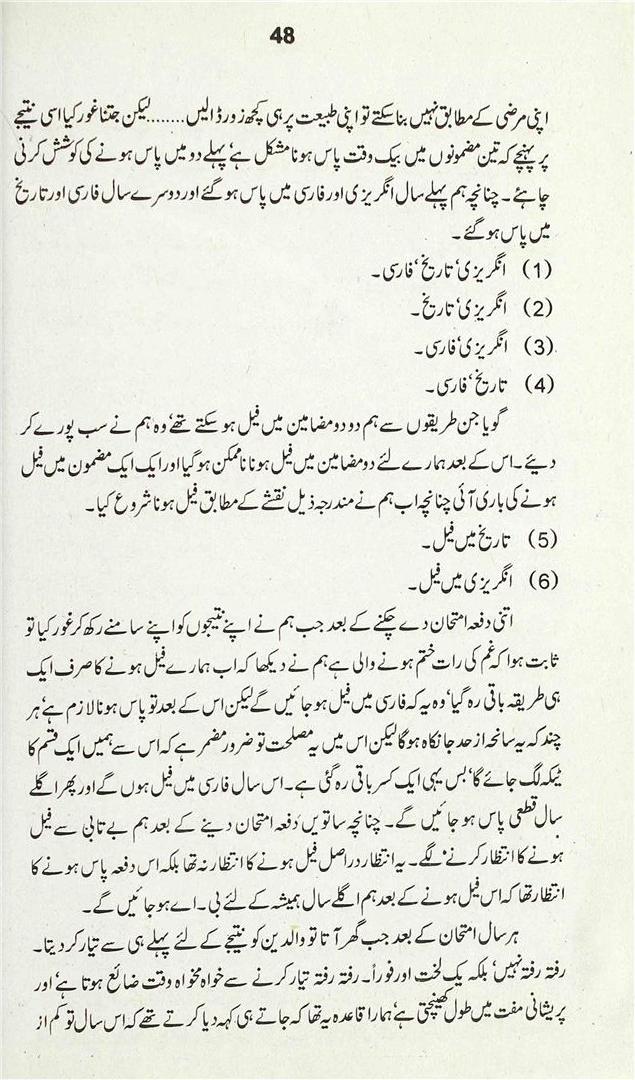 48
اپنی مرضی کے مطابق نہیں بنا سکتے تو اپنی طبیعت پر ہی کچھ زور ڈالیں........لیکن جتنا غور کیا اسی نتیجے
پر پہنچے کہ تین مضمونوں میں بیک وقت پاس ہونا مشکل ہے‘ پہلے دو میں پاس ہونے کی کوشش کرنی
چاہئے۔ چنانچہ ہم پہلے سال انگریزی اور فارسی میں پاس ہو گئے اور دوسرے سال فارسی اور تاریخ
میں پاس ہو گئے۔
(1) انگریزی‘ تاریخ‘ فارسی۔
(2) انگریزی‘ تاریخ۔
(3) انگریزی‘ فارسی۔
(4) تاریخ‘ فارسی۔
گویا جن طریقوں سے ہم دو دو مضامین میں فیل ہو سکتے تھے‘ وہ ہم نے سب پورے کر
دیئے۔ اس کے بعد ہمارے لئے دو مضامین میں فیل ہونا ناممکن ہو گیا اور ایک ایک مضمون میں فیل
ہونے کی باری آئی چنانچہ اب ہم نے مندرجہ ذیل نقشے کے مطابق فیل ہونا شروع کیا۔
(5) تاریخ میں فیل۔
(6) انگریزی میں فیل۔
اتنی دفعہ امتحان دے چکنے کے بعد جب ہم نے اپنے نتیجوں کو اپنے سامنے رکھ کر غور کیا تو
ثابت ہوا کہ غم کی رات ختم ہونے والی ہے ہم نے دیکھا کہ اب ہمارے فیل ہونے کا صرف ایک
ہی طریقہ باقی رہ گیا‘ وہ یہ کہ فارسی میں فیل ہو جائیں گے لیکن اس کے بعد تو پاس ہونا لازم ہے‘ ہر
چند کہ یہ سانحہ از حد جانکاہ ہو گا لیکن اس میں یہ مصلحت تو ضرور مضمر ہے کہ اس سے ہمیں ایک قسم کا
ٹیکہ لگ جائے گا‘ بس یہی ایک کسر باقی رہ گئی ہے۔ اس سال فارسی میں فیل ہوں گے اور پھر اگلے
سال قطعی پاس ہو جائیں گے۔ چنانچہ ساتویں دفعہ امتحان دینے کے بعد ہم بے تابی سے فیل
ہونے کا انتظار کرنے لگے۔ یہ انتظار دراصل فیل ہونے کا انتظار نہ تھا بلکہ اس دفعہ پاس ہونے کا
انتظار تھا کہ اس فیل ہونے کے بعد ہم اگلے سال ہمیشہ کے لئے بی۔اے ہو جائیں گے۔
ہر سال امتحان کے بعد جب گھر آتا تو والدین کو نتیجے کے لئے پہلے ہی سے تیار کر دیتا۔
رفتہ رفتہ نہیں‘ بلکہ یک لخت اور فوراً۔ رفتہ رفتہ تیار کرنے سے خواہ مخواہ وقت ضائع ہوتا ہے‘ اور
پریشانی مفت میں طول کھینچتی ہے‘ ہمارا قاعدہ یہ تھا کہ جاتے ہی کہہ دیا کرتے تھے کہ اس سال تو کم از